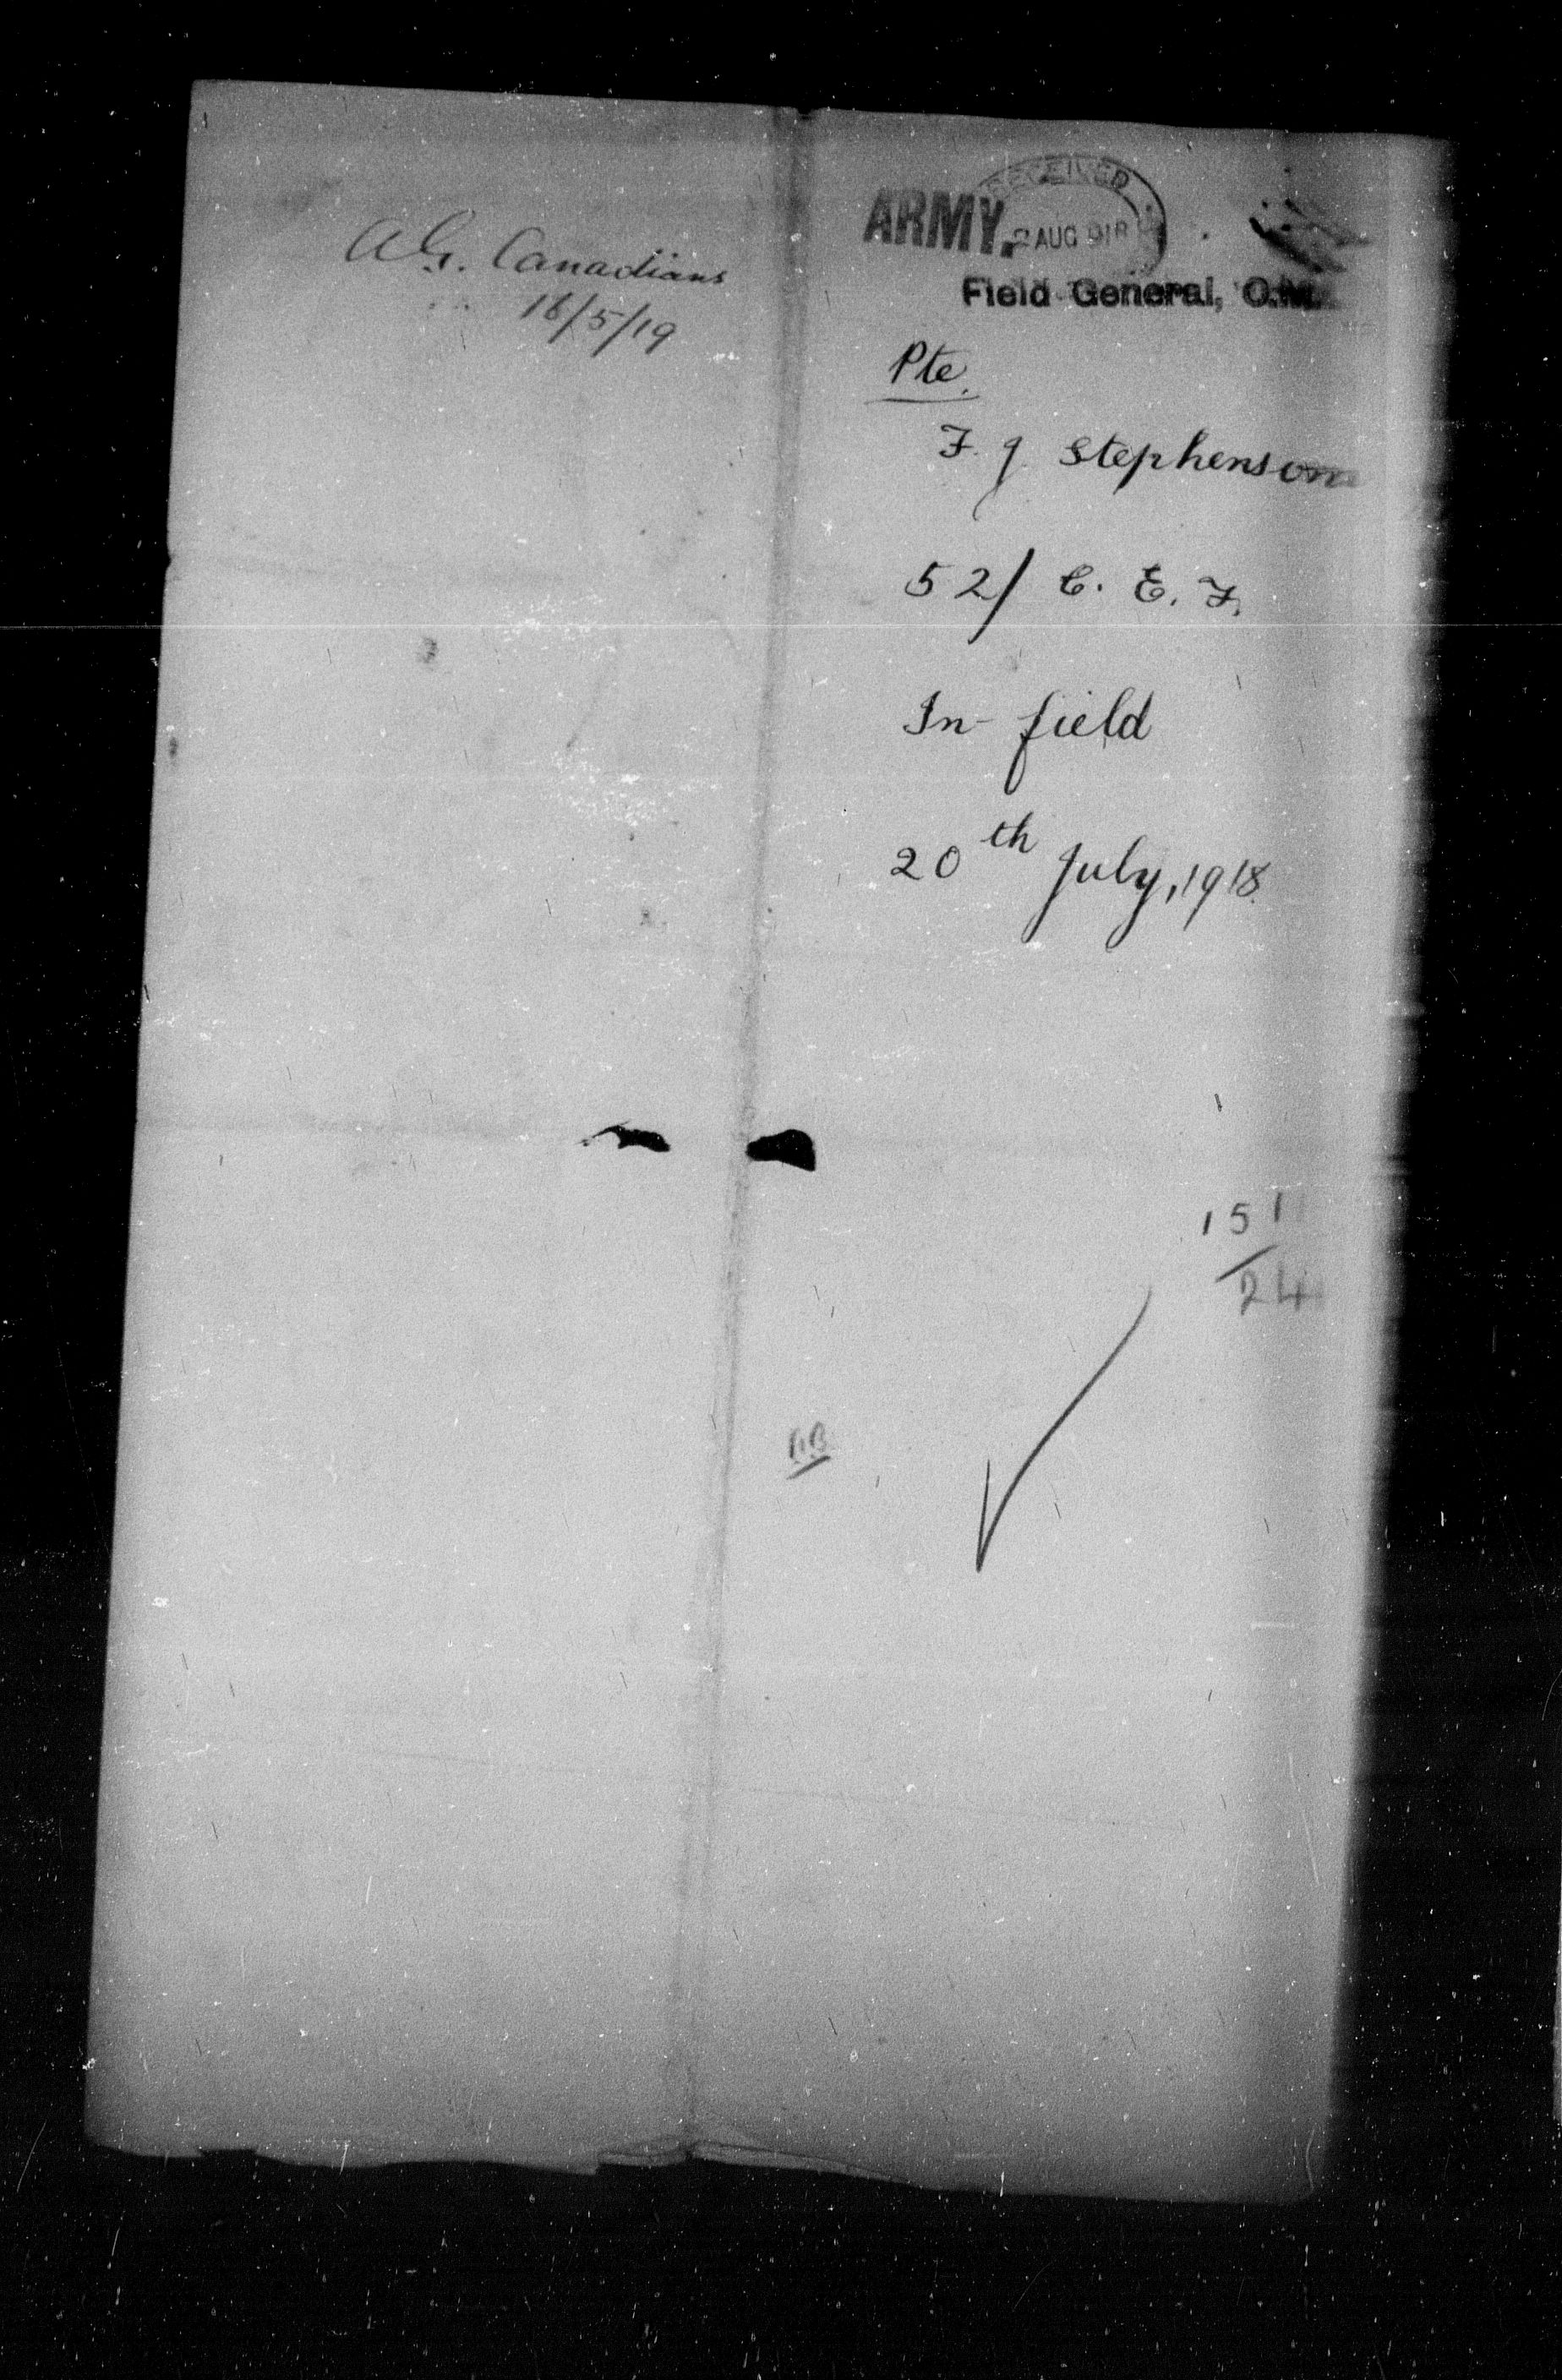 A.G. Canadians
16/5/19
RECEIVED
ARMY.
2 AUG 918
Field General, C.M.
Pte.
F. J. Stephenson
52/ C. E. F.
In field
20th July, 1918.
151
24